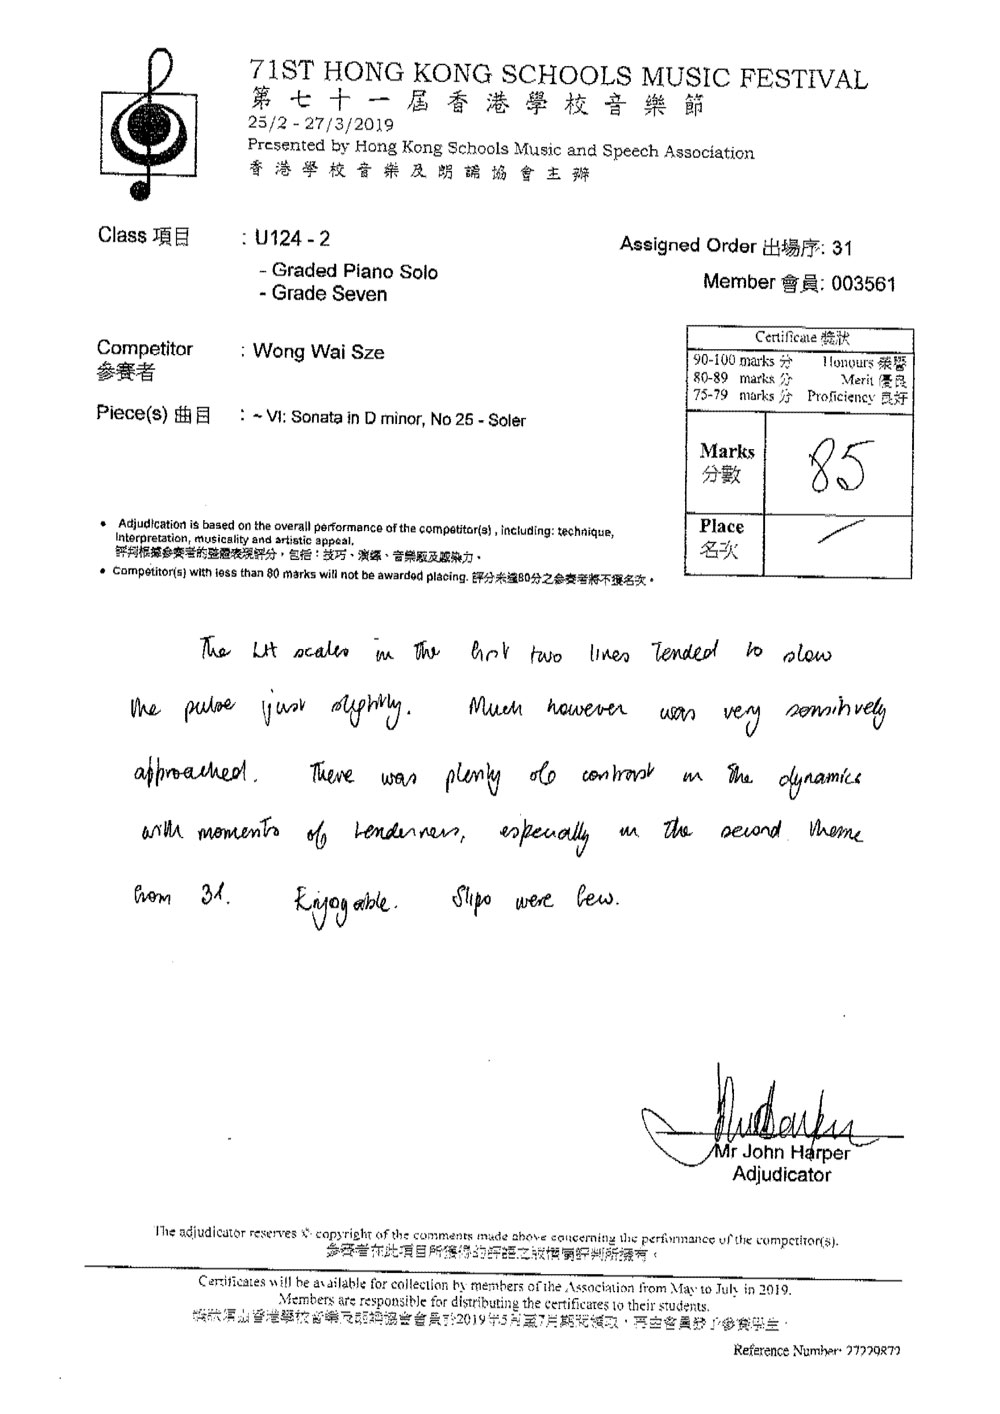 71ST HONG KONG SCHOOLS MUSIC FESTIVAL
第七十一屆香港學校音樂節
25/2 - 27/3/2019
Presented by Hong Kong Schools Music and Speech Association
香港學校音樂及朗誦協會主辦
Class 項目 : U124 - 2
Assigned Order 出場序: 31
- Graded Piano Solo
Member 會員: 003561
- Grade Seven
Competitor : Wong Wai Sze
參賽者
Piece(s) 曲目 : ~ VI: Sonata in D minor, No 25 - Soler
Certificate 獎狀
90-100 marks 分 Honours 榮譽
80-89 marks 分 Merit 優良
75-79 marks 分 Proficiency 良好
Marks 85
分數
Place
名次
• Adjudication is based on the overall performance of the competitor(s) , including: technique,
interpretation, musicality and artistic appeal.
評判根據參賽者的整體表現評分，包括：技巧、演繹、音樂感及感染力。
• Competitor(s) with less than 80 marks will not be awarded placing. 評分未達80分之參賽者將不獲名次。
The LH scales in the first two lines tended to slow
the pulse just slightly. Much however was very sensitively
approached. There was plenty of contrast in the dynamics
with moments of tenderness, especially in the second theme
from 31. Enjoyable. Slips were few.
Mr John Harper
Adjudicator
The adjudicator reserves copyright of the comments made above concerning the performance of the competitor(s).
參賽者在此項目所獲得的評語之版權屬評判所擁有。
Certificates will be available for collection by members of the Association from May to July in 2019.
Members are responsible for distributing the certificates to their students.
獎狀須由香港學校音樂及朗誦協會會員於2019年5月至7月期間領取，再由會員發予參賽學生。
Reference Number: 27229872